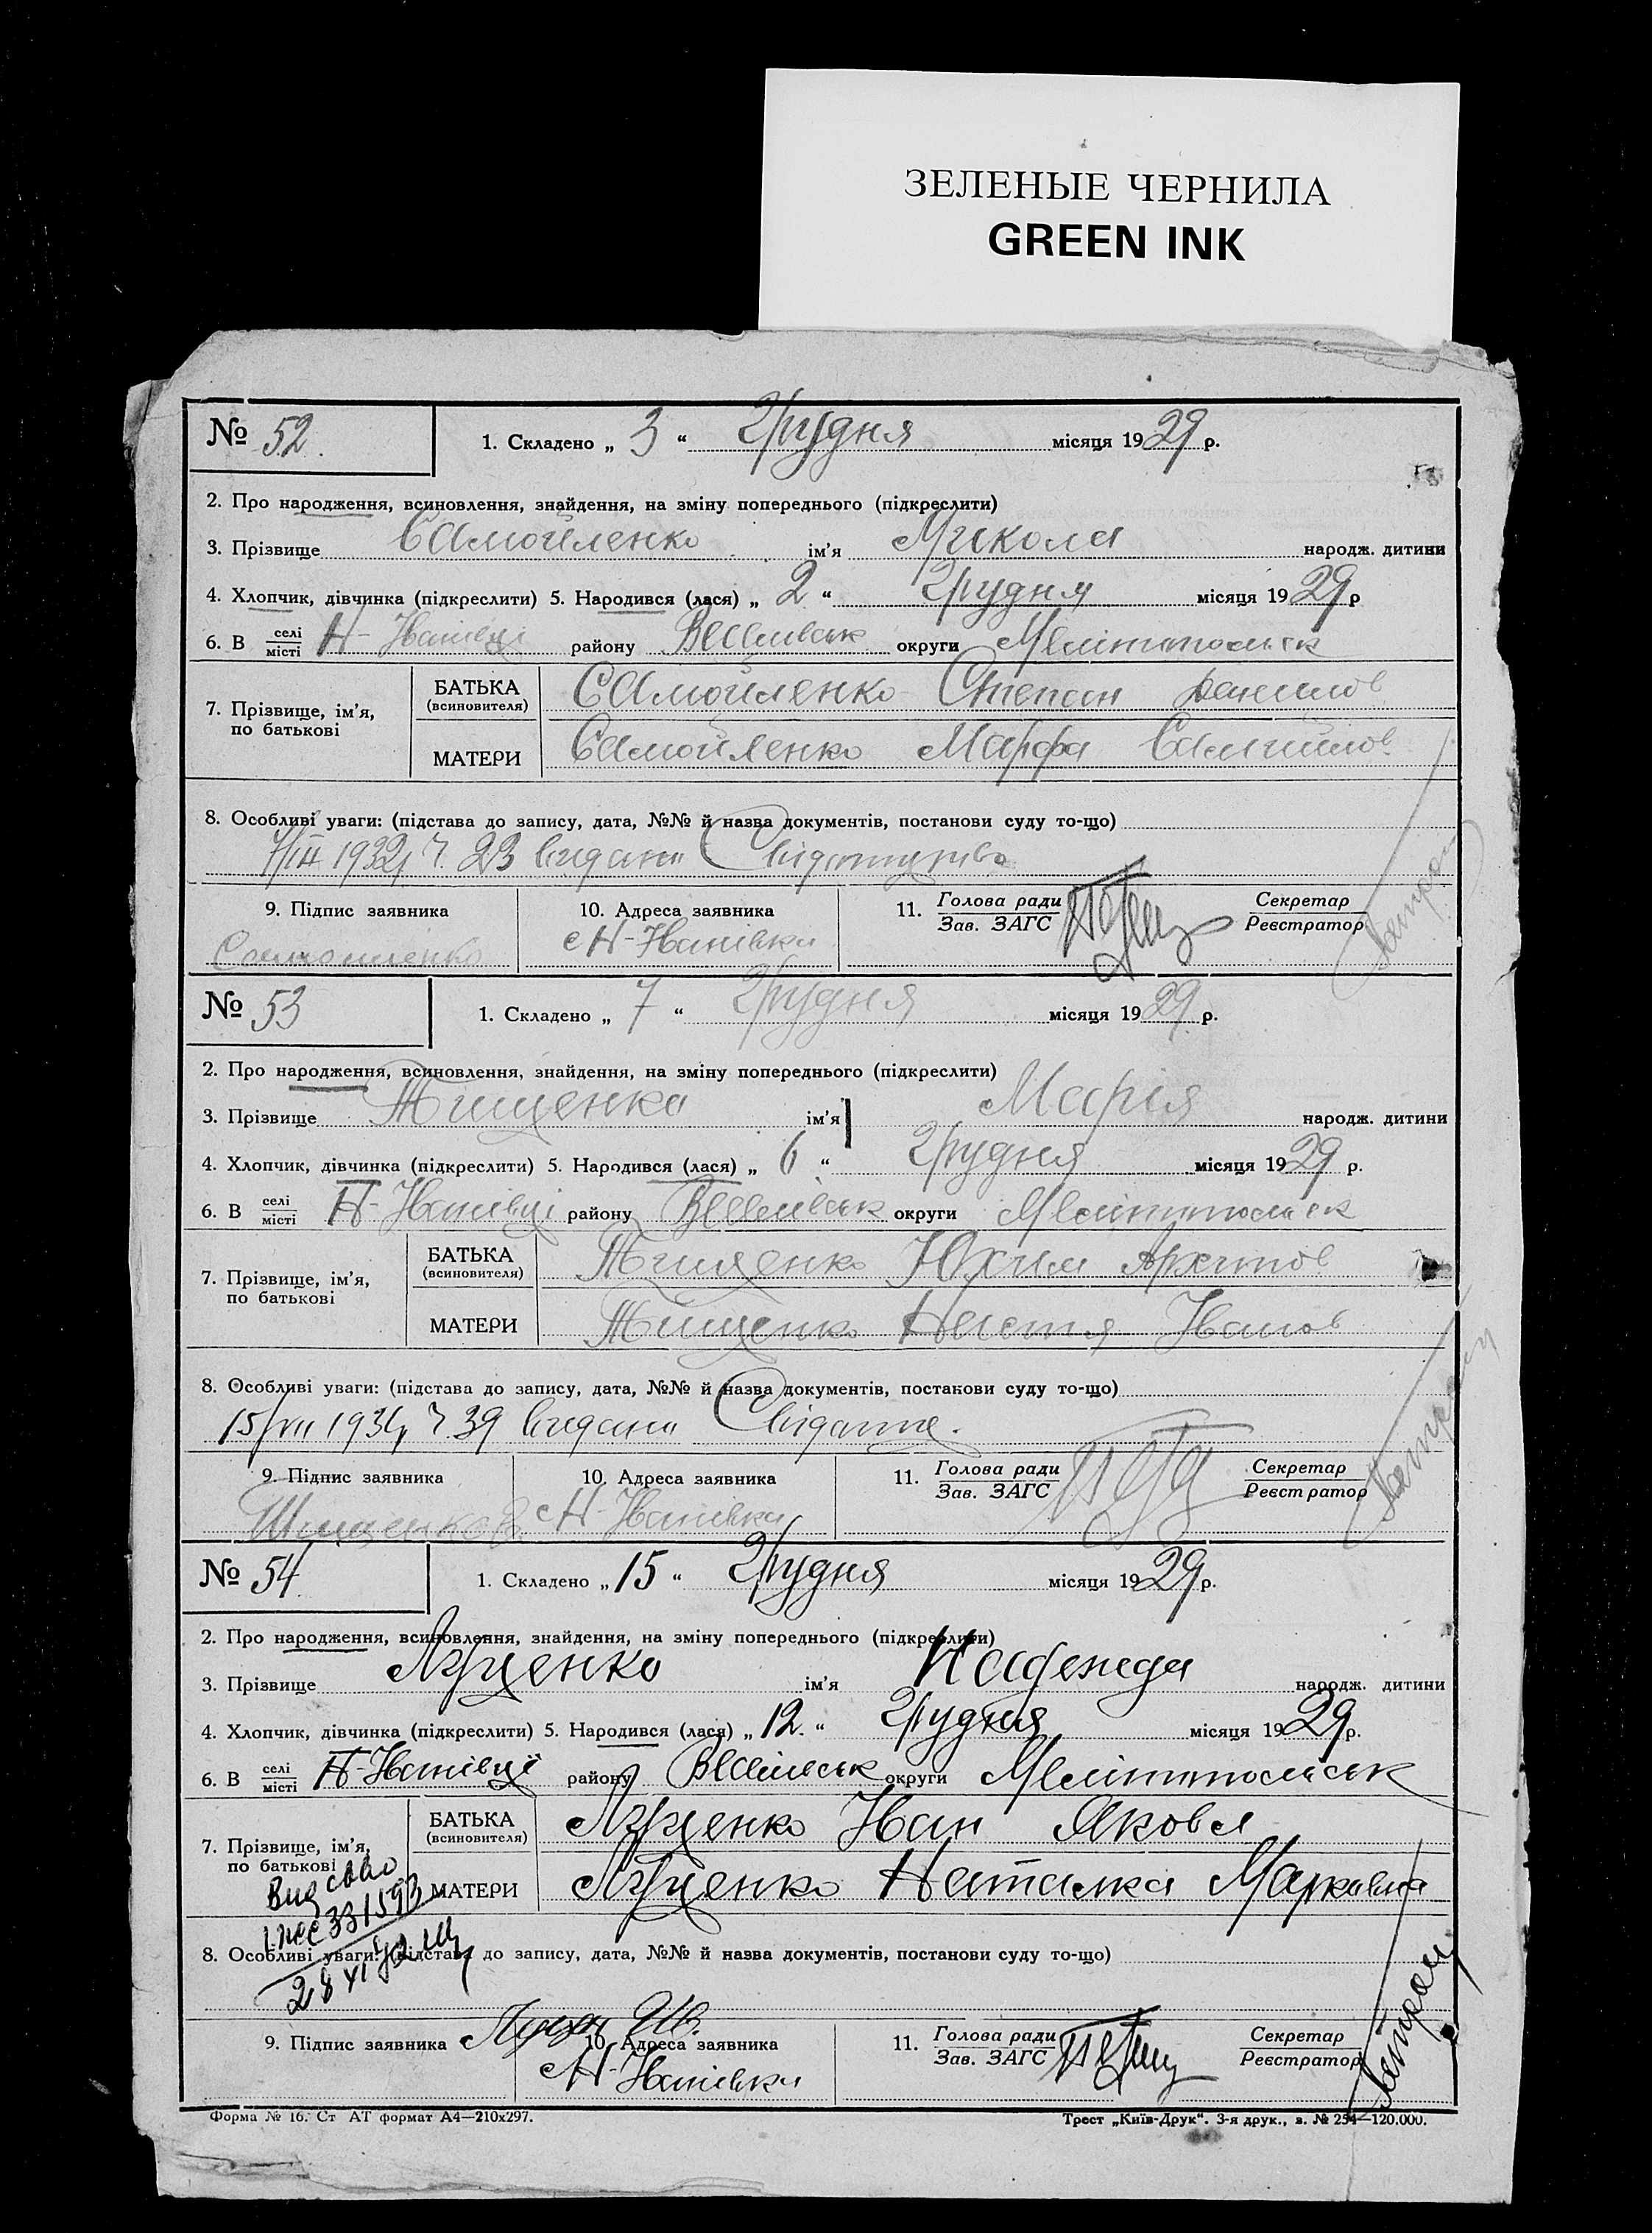 ЗЕЛЕНЫЕ ЧЕРНИЛА
GREEN INK
№ 52. 1. Складено „ 3 “ Грудня місяця 1929 р.
2. Про народження, всиновлення, знайдення, на зміну попереднього (підкреслити)
3. Прізвище Самойленко ім'я Микола народж. дитини
4. Хлопчик, дівчинка (підкреслити) 5. Народився (лася) „ 2 “ Грудня місяця 1929 р
6. В селі/місті Н-Іванівці району Веселівськ округи Мелітопольськ
7. Прізвище, ім'я, по батькові
БАТЬКА (всиновителя) Самойленко Степан Данилов
МАТЕРИ Самойленко Марфа Самійлов
8. Особливі уваги: (підстава до запису, дата, №№ й назва документів, постанови суду то-що)
1932 Ч. 23 видани
9. Підпис заявника 10. Адреса заявника 11. Голова ради/Зав. ЗАГС Секретар/Реєстратор
Самойленко с Н-Іванівка
№ 53 1. Складено „ 7 “ Грудня місяця 1929 р.
2. Про народження, всиновлення, знайдення, на зміну попереднього (підкреслити)
3. Прізвище Тищенко ім'я Марія народж. дитини
4. Хлопчик, дівчинка (підкреслити) 5. Народився (лася) „ 6 “ Грудня місяця 1929 р.
6. В селі/місті Н-Іванівці району Веселівськ округи Мелітопольськ
7. Прізвище, ім'я, по батькові
БАТЬКА (всиновителя) Тищенко Юхим Архипов
МАТЕРИ Тищенко Настя Іванов
8. Особливі уваги: (підстава до запису, дата, №№ й назва документів, постанови суду то-що)
15/VII 1934 Ч 39 видани
9. Підпис заявника 10. Адреса заявника 11. Голова ради/Зав. ЗАГС Секретар/Реєстратор
с Н-Іванівка
№ 54 1. Складено „ 15 “ Грудня місяця 1929 р.
2. Про народження, всиновлення, знайдення, на зміну попереднього (підкреслити)
3. Прізвище Луценко ім'я Надежда народж. дитини
4. Хлопчик, дівчинка (підкреслити) 5. Народився (лася) „ 12. “ Грудня місяця 1929 р.
6. В селі/місті Н-Іванівці району Веселівськ округи Мелітопольськ
7. Прізвище, ім'я, по батькові
БАТЬКА (всиновителя) Луценко Іван Яковл
МАТЕРИ Луценко Наталка Марковна
331593
8. Особливі уваги: (підстава до запису, дата, №№ й назва документів, постанови суду то-що)
28 XI
9. Підпис заявника 10. Адреса заявника 11. Голова ради/Зав. ЗАГС Секретар/Реєстратор
с Н-Іванівка
Форма № 16. Ст АТ формат А4—210х297. Трест „Київ-Друк“. 3-я друк., з. № 254—120.000.